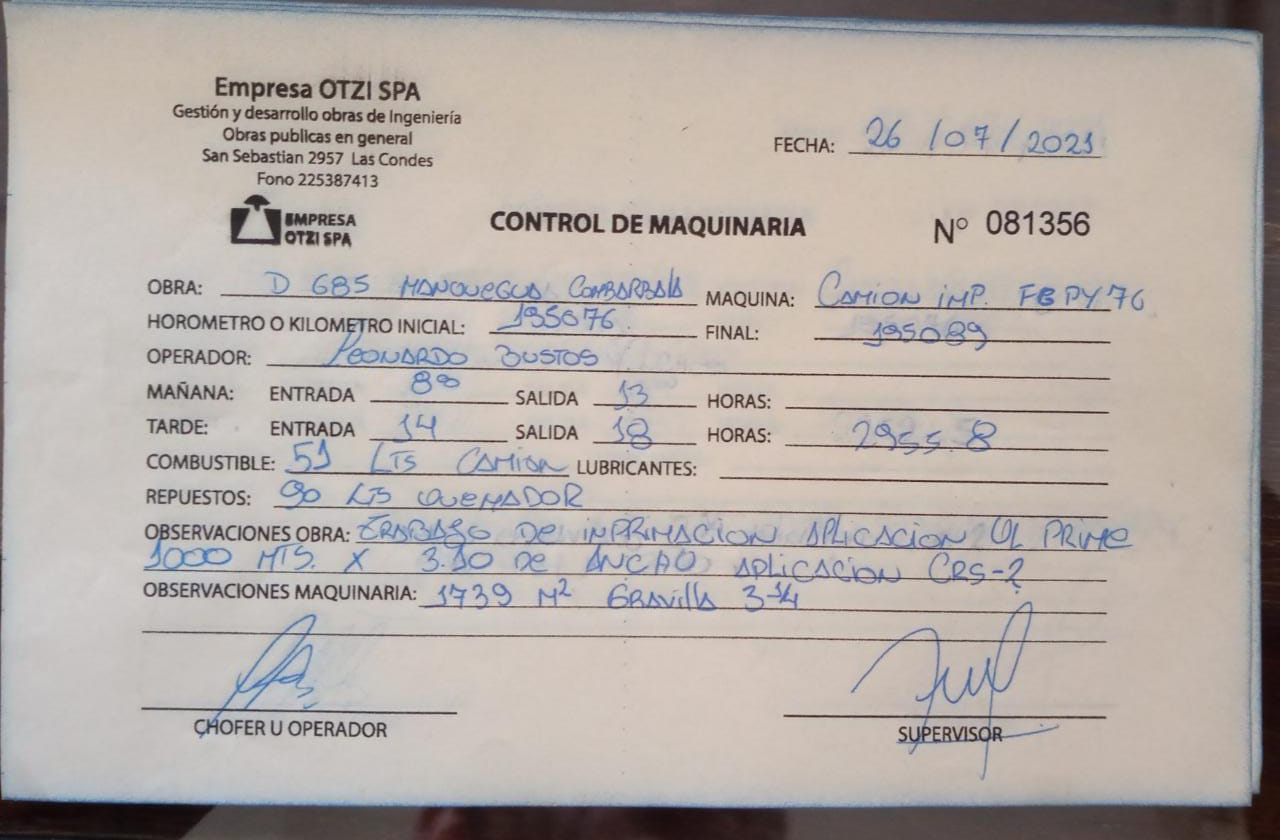 Empresa OTZI SPA
Gestión y desarrollo obras de Ingeniería
Obras publicas en general
San Sebastian 2957 Las Condes
Fono 225387413
FECHA: 26/07/2021
EMPRESA
OTZI SPA
CONTROL DE MAQUINARIA
Nº 081356
OBRA: D 685 MANQUEGUA COMBARBALA MAQUINA: CAMION IMP. FBPY76
HOROMETRO O KILOMETRO INICIAL: 195076 FINAL: 195089
OPERADOR: LEONARDO BUSTOS
MAÑANA: ENTRADA 8⁰⁰ SALIDA 13 HORAS:
TARDE: ENTRADA 14 SALIDA 18 HORAS: 2955.8
COMBUSTIBLE: 51 LTS CAMION LUBRICANTES:
REPUESTOS: 90 LTS QUEMADOR
OBSERVACIONES OBRA: TRABAJO DE INPRIMACION APLICACION QL PRIME
1000 MTS. X 3.10 DE ANCHO APLICACION CRS-2
OBSERVACIONES MAQUINARIA: 1739 M² GRAVILLA
CHOFER U OPERADOR
SUPERVISOR